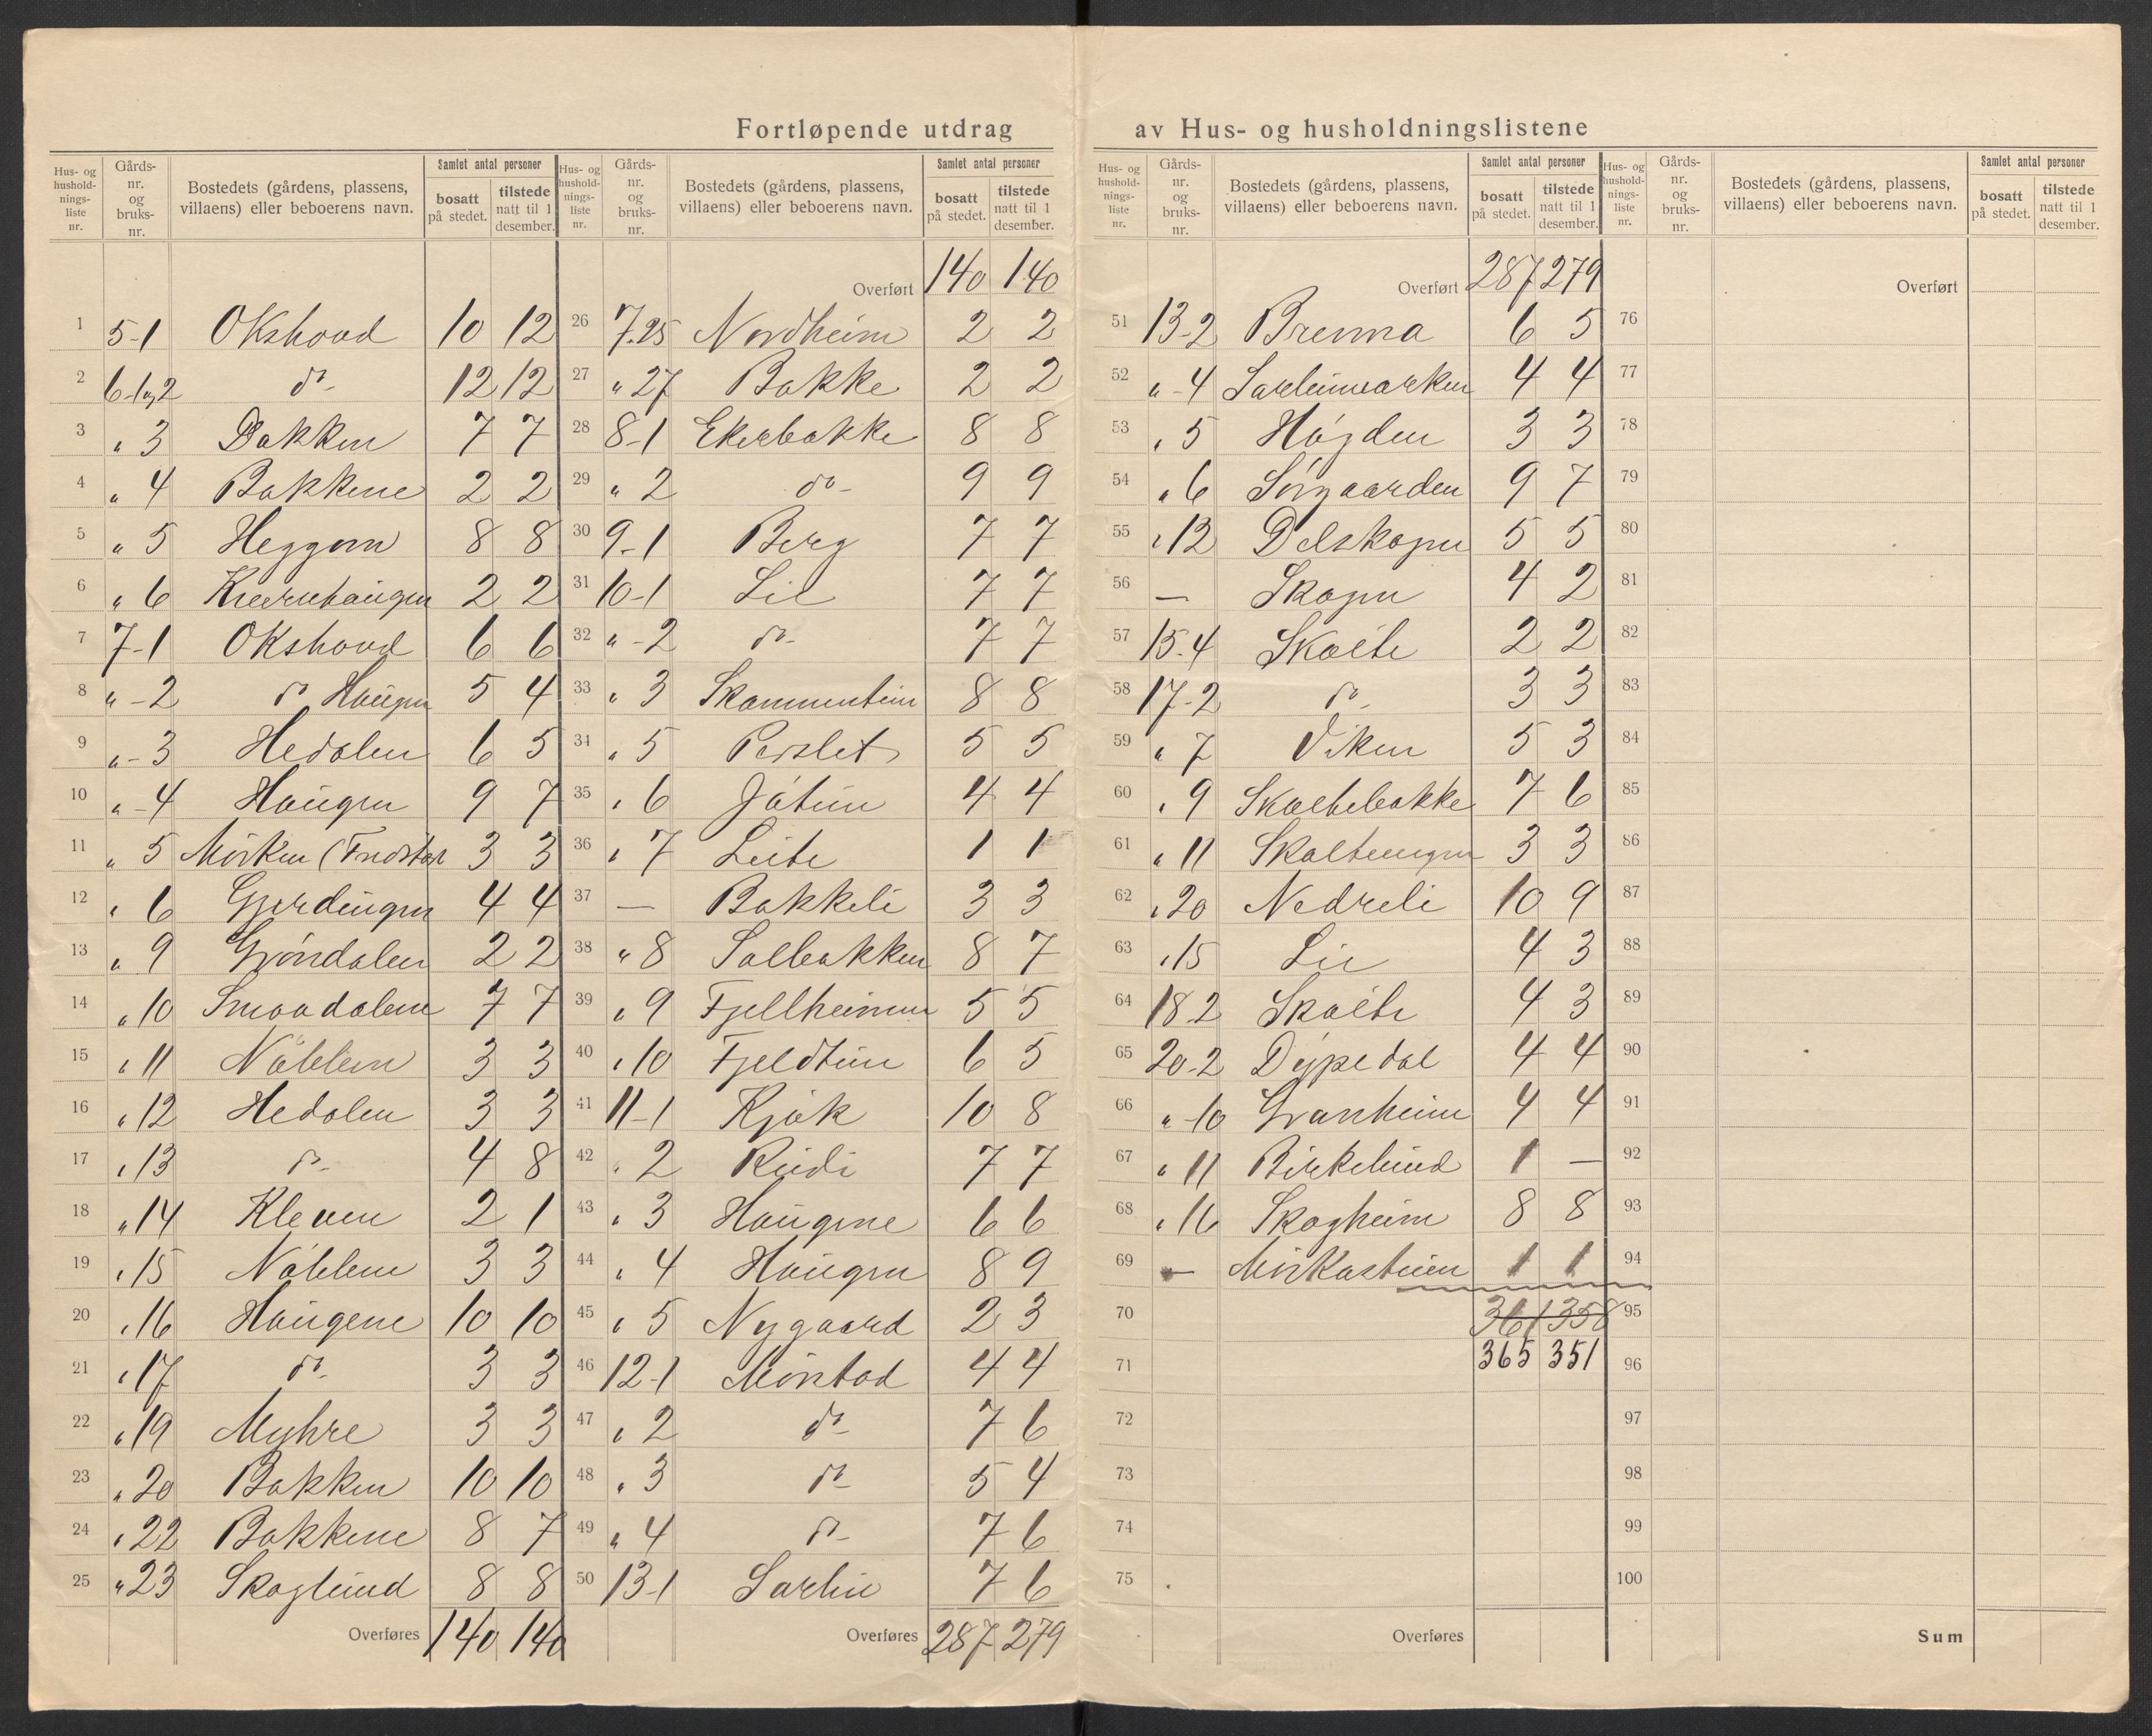 Fortløpende utdrag av Hus- og husholdningslistene
Hus- og husholdnings-liste nr. Gårds-nr. og bruks-nr. Bostedets (gårdens, plassens, villaens) eller beboerens navn. Samlet antal personer bosatt på stedet. tilstede natt til 1 desember.
1 5-1 Okshovd 10 12
2 6-1og2 do- 12 12
3 " 3 Bakken 7 7
4 " 4 Bakkene 2 2
5 " 5 Heggom 8 8
6 " 6 Kvernhaugen 2 2
7 7-1 Okshovd 6 6
8 " -2 do Haugen 5 4
9 " -3 Hedalen 6 5
10 " -4 Haugen 9 7
11 " 5 Mørken 3 3
12 " 6 Gjerdingen 4 4
13 " 9 Grøndalen 2 2
14 " 10 Smaadalene 7 7
15 " 11 3 3
16 " 12 Hedalen 3 3
17 " 13 do- 4 8
18 " 14 Kleven 2 1
19 " 15 3 3
20 " 16 Haugene 10 10
21 " 17 do- 3 3
22 " 19 Myhre 3 3
23 " 20 Bakken 10 10
24 " 22 Bakkene 8 7
25 " 23 Skoglund 8 8
Overføres 140 140
Hus- og husholdnings-liste nr. Gårds-nr. og bruks-nr. Bostedets (gårdens, plassens, villaens) eller beboerens navn. Samlet antal personer bosatt på stedet. tilstede natt til 1 desember.
Overført 140 140
26 7.25 Nordheim 2 2
27 " 27 Bakke 2 2
28 8-1 Ekerbakke 8 8
29 " 2 do- 9 9
30 9-1 Berg 7 7
31 10-1 Lie 7 7
32 " -2 do- 7 7
33 " 3 8 8
34 " 5 Perslet 5 5
35 " 6 Jøtun 4 4
36 " 7 Leite 1 1
37 — Bakkeli 3 3
38 " 8 Solbakken 8 7
39 " 9 Fjellheimen 5 5
40 " 10 Fjeldtun 6 5
41 11-1 Kjøk 10 8
42 " 2 Rudi 7 7
43 " 3 Haugene 6 6
44 " 4 Haugen 8 9
45 " 5 Nygaard 2 3
46 12-1 Mørstad 4 4
47 " 2 do- 7 6
48 " 3 do- 5 4
49 " 4 do- 7 6
50 13-1 7 6
Overføres 287 279
Hus- og husholdnings-liste nr. Gårds-nr. og bruks-nr. Bostedets (gårdens, plassens, villaens) eller beboerens navn. Samlet antal personer bosatt på stedet. tilstede natt til 1 desember.
Overført 287 279
51 13-2 Brenna 6 5
52 " -4 4 4
53 " 5 Høgden 3 3
54 " 6 Sørgaarden 9 7
55 " 12 Delskogen 5 5
56 — Skogen 4 2
57 15.4 Skolte 2 2
58 17-2 do- 3 3
59 " 7 Viken 5 3
60 " 9 Skoltebakke 7 6
61 " 11 3 3
62 " 20 Nedreli 10 9
63 " 15 Lie 4 3
64 18.2 Skolte 4 3
65 20-2 Dypedal 4 4
66 " -10 Granheim 4 4
67 " 11 Birkelund 1 —
68 " 16 Skogheim 8 8
69 — Mørkastuen 1 1
70 361 358
71 365 351
72
73
74
75
Overføres
Hus- og husholdnings-liste nr. Gårds-nr. og bruks-nr. Bostedets (gårdens, plassens, villaens) eller beboerens navn. Samlet antal personer bosatt på stedet. tilstede natt til 1 desember.
Overført
76
77
78
79
80
81
82
83
84
85
86
87
88
89
90
91
92
93
94
95
96
97
98
99
100
Sum